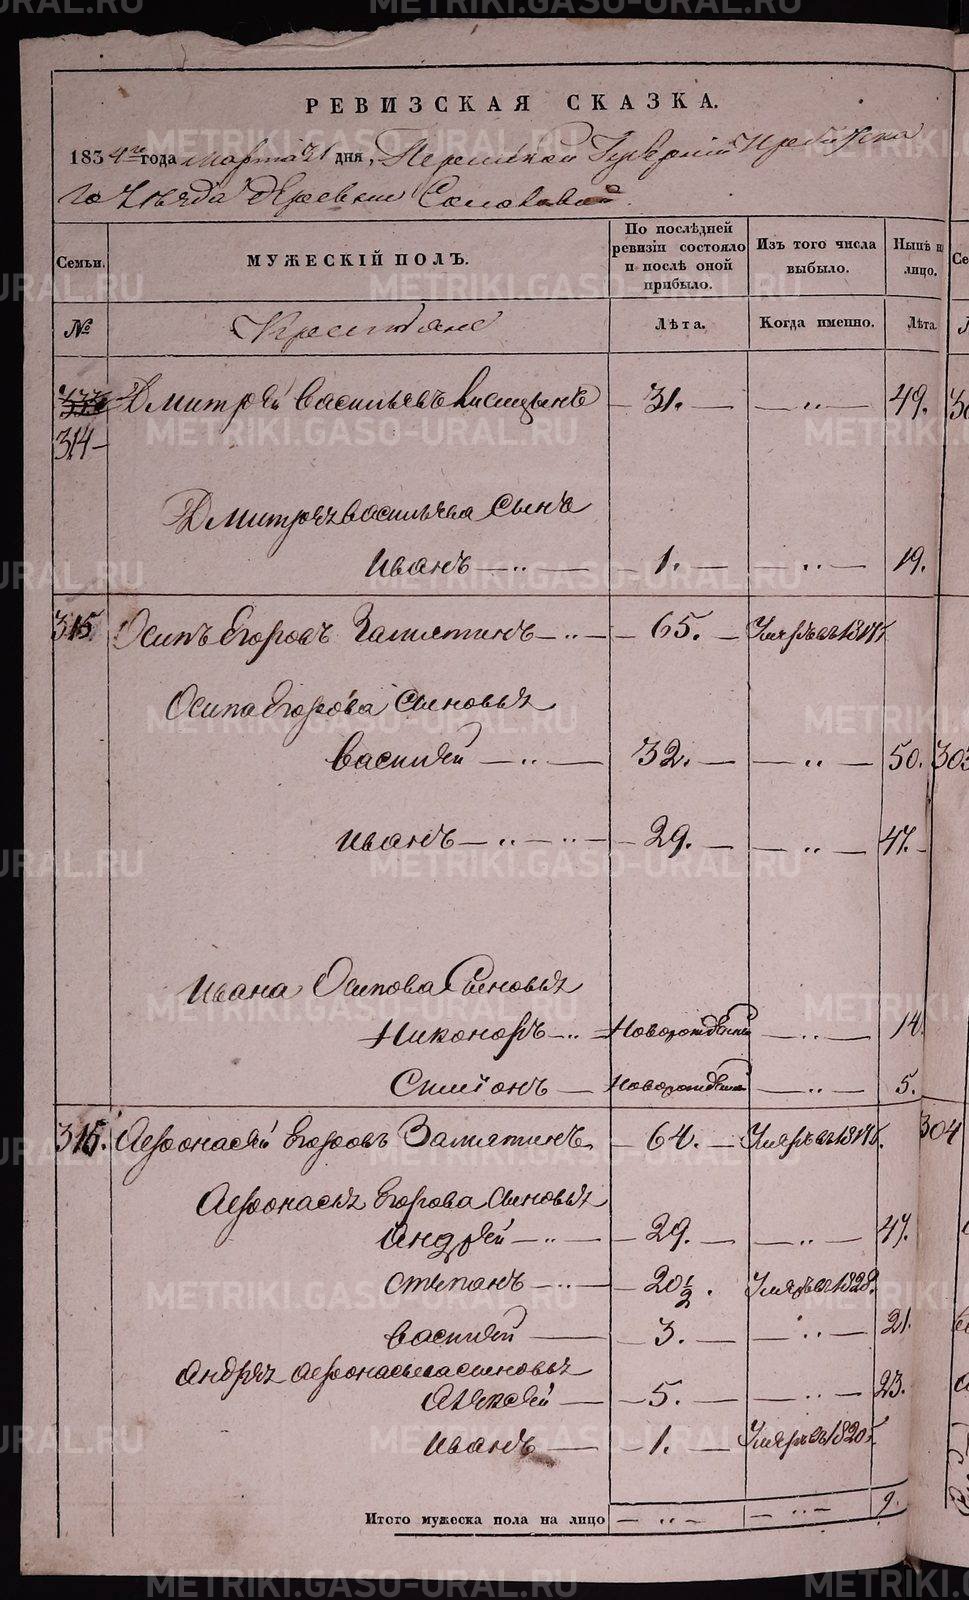 РЕВИЗСКАЯ СКАЗКА.
1834го года марта 21 дня, Пермской Губернии Ирбитска
го Уезда деревни
Семьи.
МУЖЕСКІЙ ПОЛЪ.
По послѣдней ревизіи состояло и послѣ оной прибыло.
Изъ того числа выбыло.
Нынѣ н лицо.
№
Крестьяне
Лѣта.
Когда именно.
Лѣта.
Дмитрей Васильевъ — 31. — — „ — 49.
314 —
Дмитрея Васильева Сынъ
Иванъ — „ — 1. — — „ — 19.
315. Осипъ Егоровъ Замятинъ — „ — 65. — Умеръ въ 1817г
Осипа Егорова Сыновья
Василей — „ — 32. — — „ — 50. 303
Иванъ — „ — „ — 29. — — „ — 47. —
Ивана Осипова Сыновья
Никоноръ — „ Новорожденный — „ — 14.
Симіонъ — Новорожденный — „ — 5.
315. Афонасей Егоровъ Замятинъ — 64. — Умеръ въ 1817г. 304
Афонасья Егорова Сыновья
Андрей — „ — 29. — — „ — 47.
Степанъ — „ — 20 1/2. Умеръ въ 1828.
Василей — 3. — — „ — 21.
Андрея Афонасьева сыновья
Алексей — 5. — — „ — 23.
Иванъ — 1. — Умеръ въ 1820г.
Итого мужеска пола на лицо — „ — — „ — 9.
METRIKI.GASO-URAL.RU